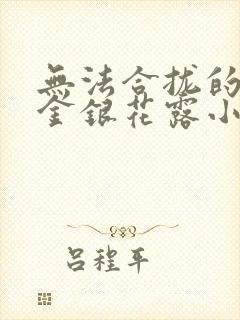 無法合拢的
金銀花露小
吕程平